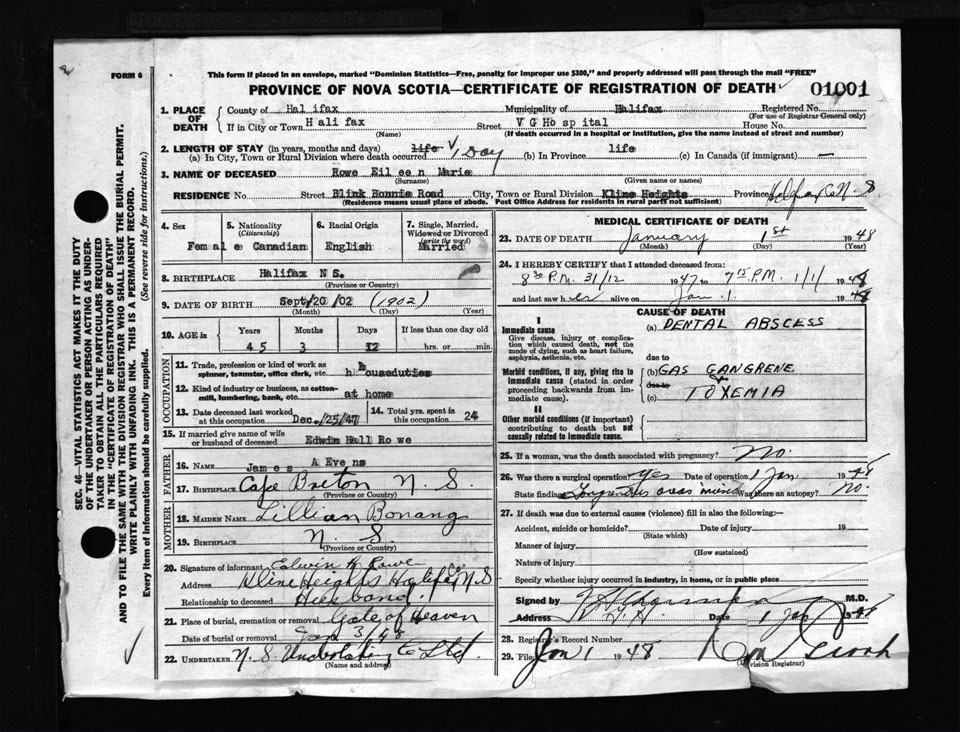 FORM 6
This form if placed in an envelope, marked "Dominion Statistics—Free, penalty for improper use $300," and properly addressed will pass through the mail "FREE"
PROVINCE OF NOVA SCOTIA—CERTIFICATE OF REGISTRATION OF DEATH 01001
1. PLACE OF DEATH County of Halifax Municipality of Halifax Registered No.
(For use of Registrar General only)
If in City or Town Halifax Street V G Hospital House No.
(Name) (If death occurred in a hospital or institution, give the name instead of street and number)
2. LENGTH OF STAY (in years, months and days)
(a) In City, Town or Rural Division where death occurred life 1 Day (b) In Province life (c) In Canada (if immigrant) —
3. NAME OF DECEASED Rowe Eileen Marie
(Surname) (Given name or names)
RESIDENCE No. Street Blink Bonnie Road City, Town or Rural Division Kline Heights Province Halifax Co N.S
(Residence means usual place of abode. Post Office Address for residents in rural parts not sufficient)
4. Sex Female
5. Nationality (Citizenship) Canadian
6. Racial Origin English
7. Single, Married, Widowed or Divorced (write the word) Married
8. BIRTHPLACE Halifax N S.
(Province or Country)
9. DATE OF BIRTH Sept/20/02 (1902)
(Month) (Day) (Year)
10. AGE in Years Months Days If less than one day old
45 3 12 hrs. or min.
OCCUPATION
11. Trade, profession or kind of work as spinner, teamster, office clerk, etc. houseduties
12. Kind of industry or business, as cotton-mill, lumbering, bank, etc. at home
13. Date deceased last worked at this occupation Dec./25/47
14. Total yrs. spent in this occupation 24
15. If married give name of wife or husband of deceased Edwin Hall Rowe
FATHER
16. NAME James A Evens
17. BIRTHPLACE Cape Breton N.S.
(Province or Country)
MOTHER
18. MAIDEN NAME Lillian Bonang
19. BIRTHPLACE N.S.
(Province or Country)
20. Signature of informant Edwin H Rowe
Address Kline Heights Halifax Co. N.S
Relationship to deceased Husband
21. Place of burial, cremation or removal Gate of Heaven
Date of burial or removal Jan 3/48
22. UNDERTAKER N.S. Undertaking Co Ltd.
(Name and address)
MEDICAL CERTIFICATE OF DEATH
23. DATE OF DEATH January 1st 1948
(Month) (Day) (Year)
24. I HEREBY CERTIFY that I attended deceased from:
8 30 P.M. 31/12 1947 to 7 15 P.M. 1/1/ 1948
and last saw her alive on Jan. 1 1948
CAUSE OF DEATH
I
Immediate cause
Give disease, injury or complication which caused death, not the mode of dying, such as heart failure, asphyxia, asthenia, etc.
(a) DENTAL ABSCESS
due to
Morbid conditions, if any, giving rise to immediate cause (stated in order proceeding backwards from immediate cause).
(b) GAS GANGRENE
due to
(c) TOXEMIA
II
Other morbid conditions (if important) contributing to death but not causally related to immediate cause.
25. If a woman, was the death associated with pregnancy? No.
26. Was there a surgical operation? Yes Date of operation 1 Jan. 1948
State findings Gangrenous areas Was there an autopsy? No.
27. If death was due to external causes (violence) fill in also the following:—
Accident, suicide or homicide? Date of injury 19
(State which)
Manner of injury
(How sustained)
Nature of injury
Specify whether injury occurred in industry, in home, or in public place
Signed by M.D.
Address V.G.H. Date 1 Jan 1948
28. Registrar's Record Number
29. Filed Jan 1 1948
(Division Registrar)
SEC. 46—VITAL STATISTICS ACT MAKES IT THE DUTY
OF THE UNDERTAKER OR PERSON ACTING AS UNDER-
TAKER TO OBTAIN ALL THE PARTICULARS REQUIRED
IN THE "CERTIFICATE OF REGISTRATION OF DEATH"
AND TO FILE THE SAME WITH THE DIVISION REGISTRAR WHO SHALL ISSUE THE BURIAL PERMIT.
WRITE PLAINLY WITH UNFADING INK. THIS IS A PERMANENT RECORD.
Every item of Information should be carefully supplied. (See reverse side for instructions.)